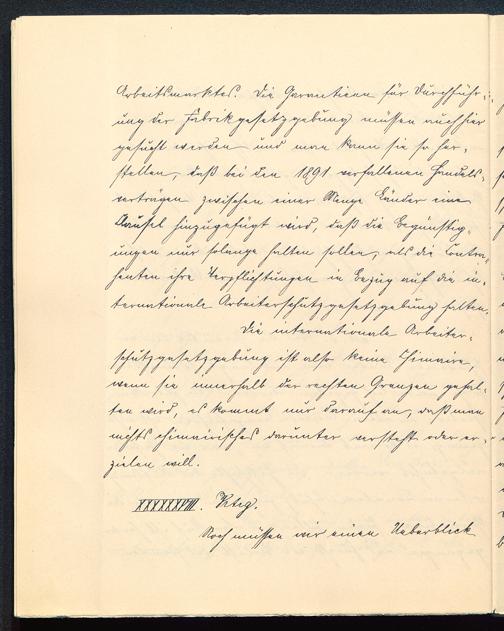 Arbeitsmarktes. Die Garantieen für Durchführ-
ung der Fabrikgesetzgebung müssen auch hier
gesucht werden und man kann sie so her-
stellen, daß bei den 1891 verfallenen Handels-
verträgen zwischen einer Menge Länder eine
Clausel hinzugefügt wird, daß die Begünstig-
ungen nur solange halten sollen, als die Contra-
henten ihre Verpflichtungen in Bezug auf die in-
ternationale Arbeiterschutzgesetzgebung halten.
Die internationale Arbeiter-
schutzgesetzgebung ist also keine Chimaire,
wenn sie innerhalb der rechten Grenzen gehal-
ten wird, es kommt nur darauf an, daß man
nichts chimairisches darunter versteht oder er-
zielen will.
XXXXXXVIII.
Noch müssen wir einen Ueberblick